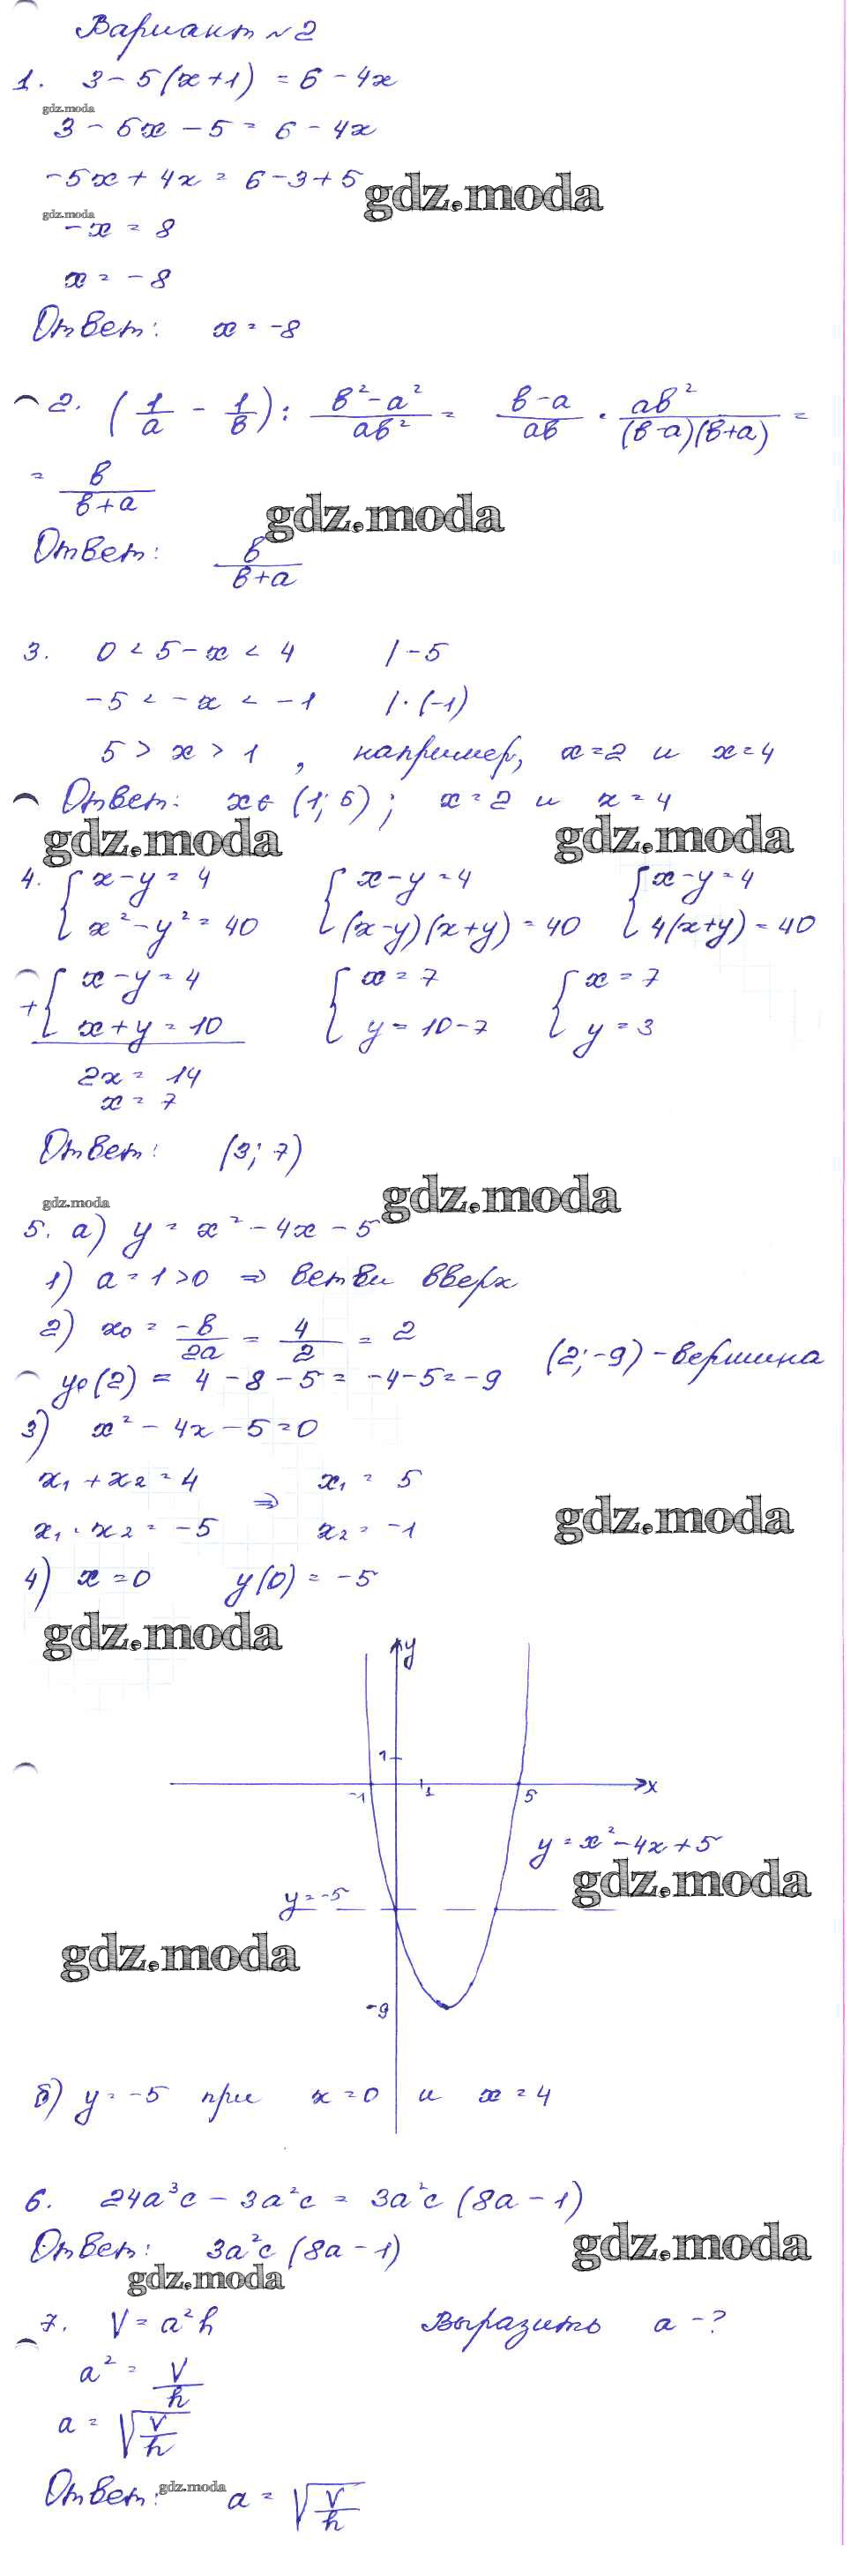 Вариант №2
1. 3 - 5(x+1) = 6 - 4x
gdz.moda
3 - 5x - 5 = 6 - 4x
-5x + 4x = 6 - 3 + 5
gdz.moda
gdz.moda
-x = 8
x = -8
Ответ: x = -8
2. (1/a - 1/в) : (в² - a²)/(aв²) = (в-a)/(aв) · (aв²)/((в-a)(в+a)) =
= в/(в+a)
gdz.moda
Ответ: в/(в+a)
3. 0 < 5 - x < 4 | -5
-5 < -x < -1 | ·(-1)
5 > x > 1, например, x=2 и x=4
Ответ: x ∈ (1; 5); x = 2 и x = 4
gdz.moda gdz.moda
4. { x - y = 4 { x - y = 4 { x - y = 4
x² - y² = 40 (x-y)(x+y) = 40 4(x+y) = 40
+ { x - y = 4 { x = 7 { x = 7
x + y = 10 y = 10 - 7 y = 3
2x = 14
x = 7
Ответ: (3; 7)
gdz.moda
gdz.moda
5. а) y = x² - 4x - 5
1) a = 1 > 0 ⇒ ветви вверх
2) x₀ = -в/2a = 4/2 = 2
(2; -9) - вершина
y₀(2) = 4 - 8 - 5 = -4 - 5 = -9
3) x² - 4x - 5 = 0
x₁ + x₂ = 4 ⇒ x₁ = 5
x₁ · x₂ = -5 x₂ = -1
gdz.moda
4) x = 0 y(0) = -5
gdz.moda
y
1
-1 1 5 x
y = x² - 4x + 5
gdz.moda
y = -5
gdz.moda
-9
б) y = -5 при x = 0 и x = 4
6. 24a³c - 3a²c = 3a²c (8a - 1)
Ответ: 3a²c (8a - 1)
gdz.moda
gdz.moda
7. V = a²h Выразить a - ?
a² = V/h
a = √(V/h)
Ответ: a = √(V/h)
gdz.moda